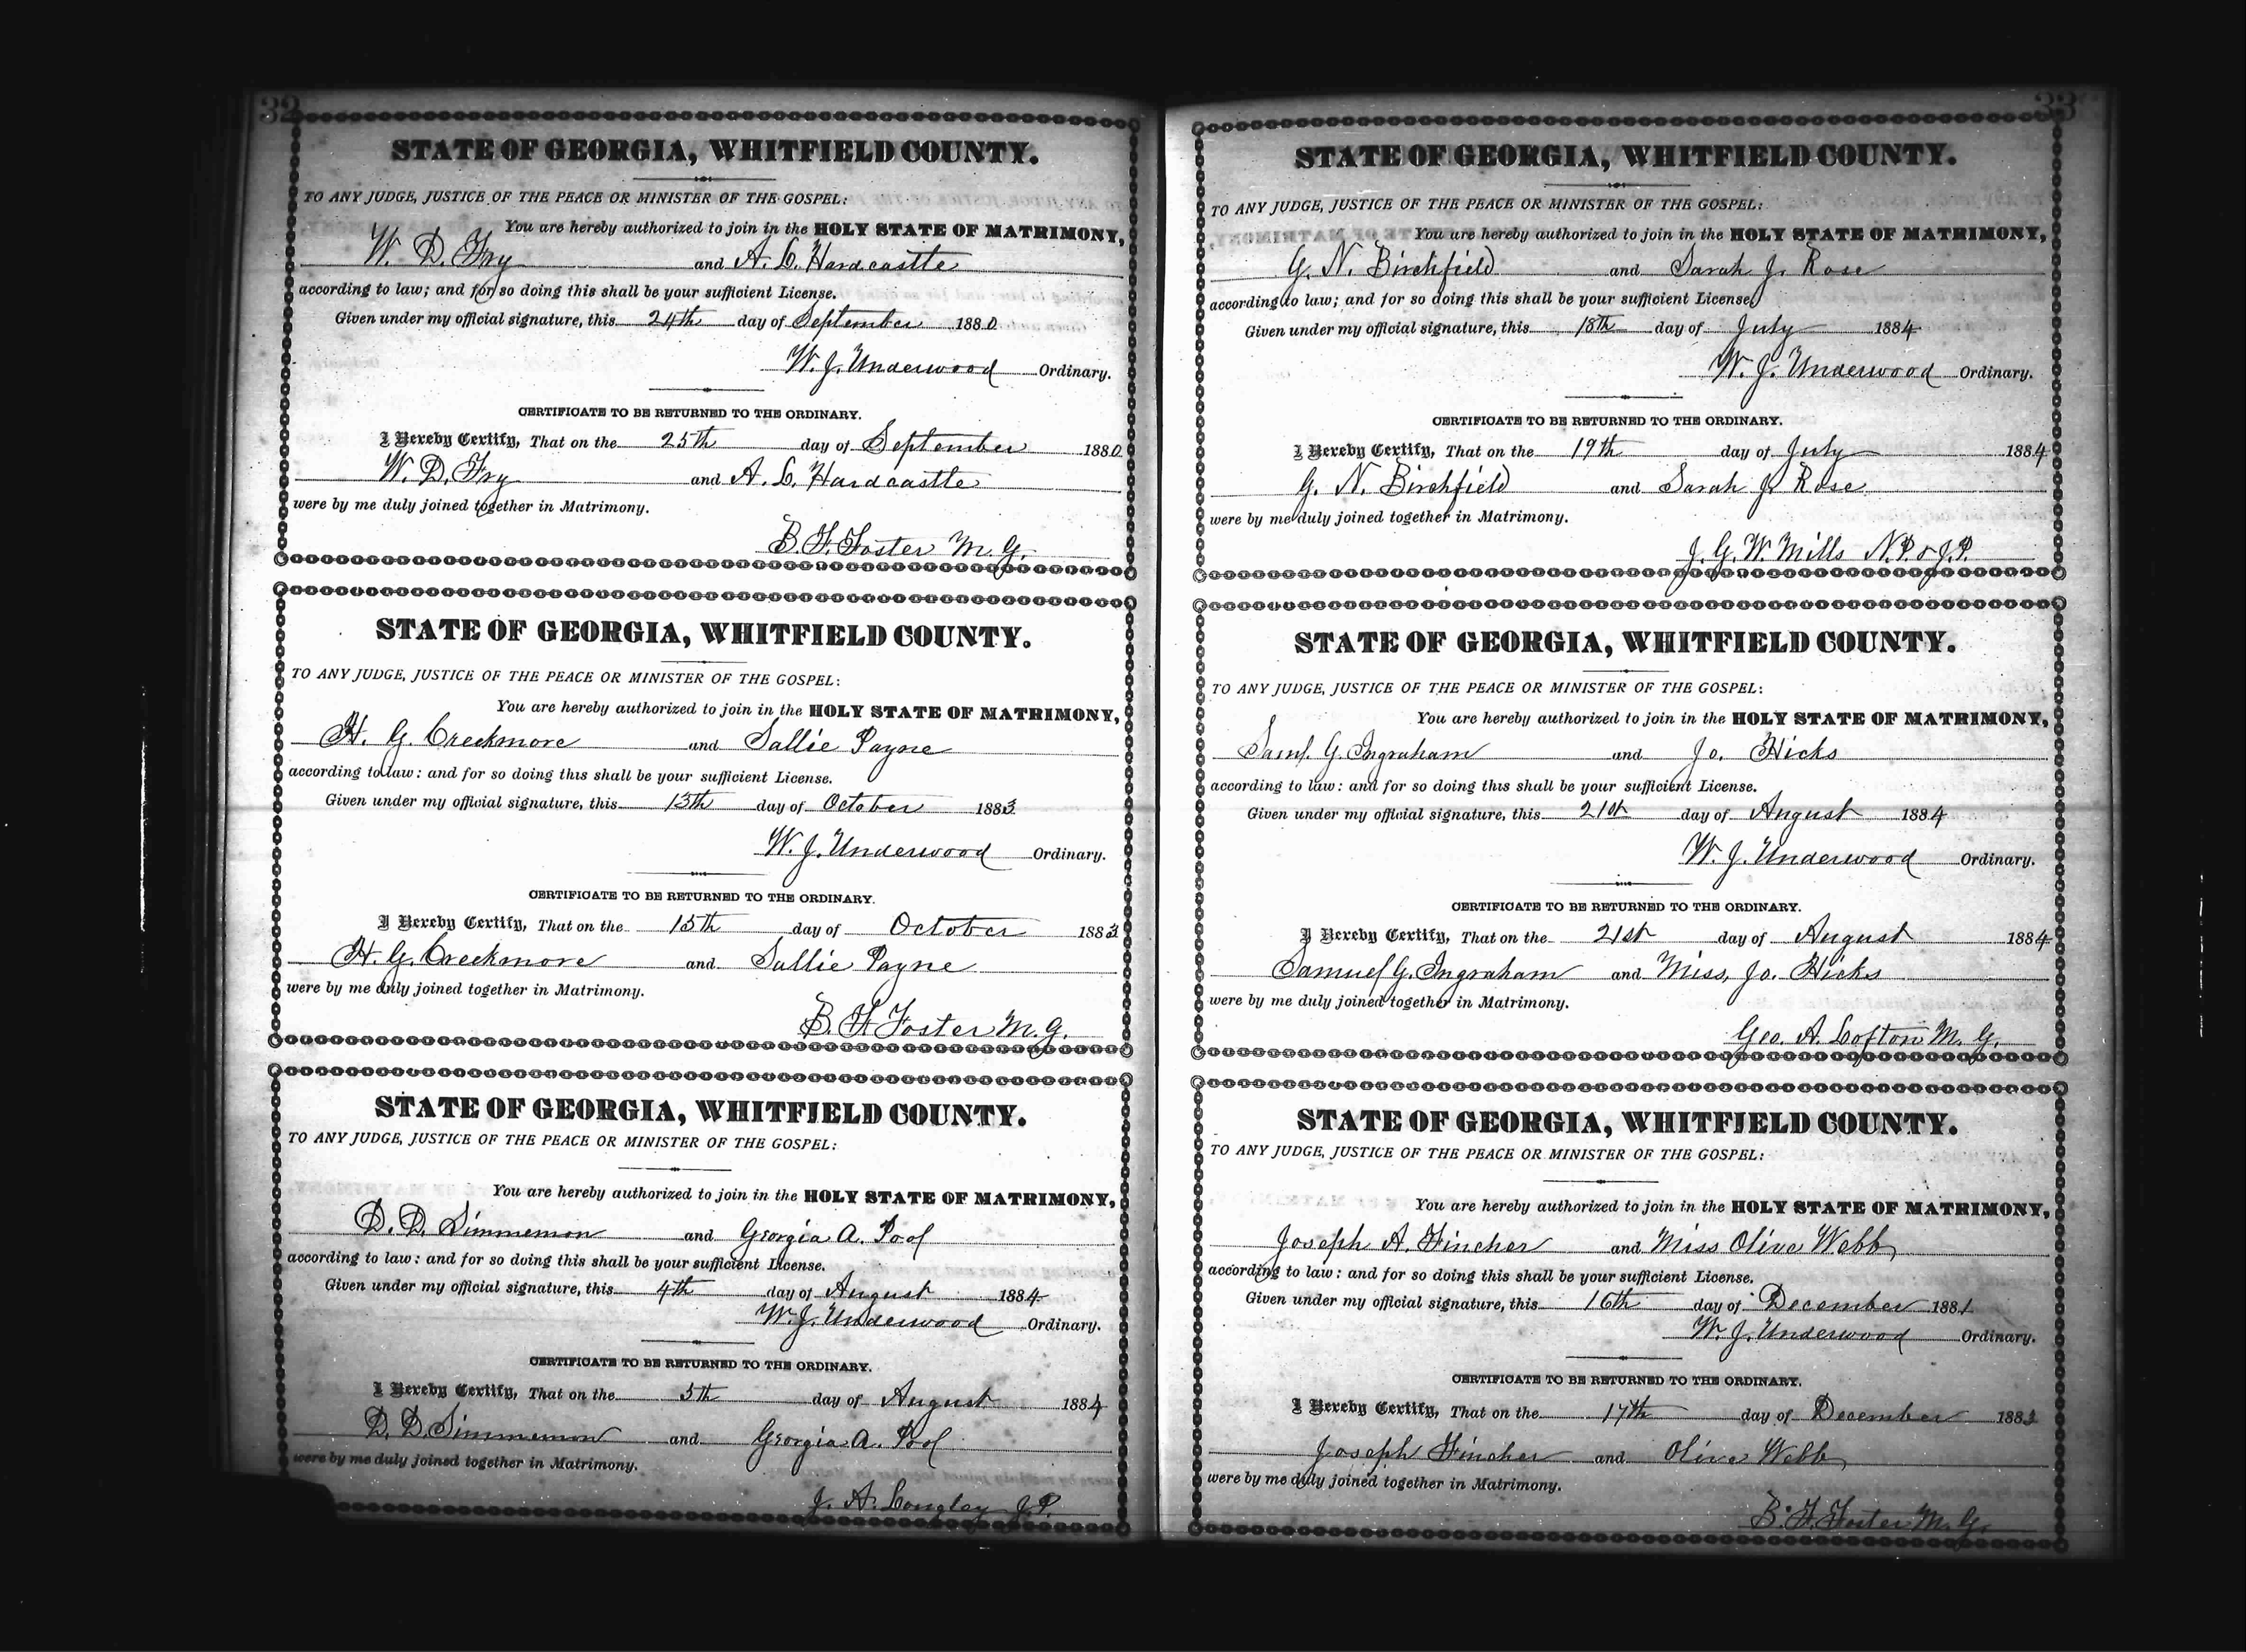 32
STATE OF GEORGIA, WHITFIELD COUNTY.
TO ANY JUDGE, JUSTICE OF THE PEACE OR MINISTER OF THE GOSPEL:
You are hereby authorized to join in the HOLY STATE OF MATRIMONY,
W. D. Fry and A. L. Hardcastle
according to law; and for so doing this shall be your sufficient License.
Given under my official signature, this 24th day of September 1880
W. J. Underwood Ordinary.
CERTIFICATE TO BE RETURNED TO THE ORDINARY.
I Hereby Certify, That on the 25th day of September 1880
W. D. Fry and A. L. Hardcastle
were by me duly joined together in Matrimony.
B. F. Foster M. G.
STATE OF GEORGIA, WHITFIELD COUNTY.
TO ANY JUDGE, JUSTICE OF THE PEACE OR MINISTER OF THE GOSPEL:
You are hereby authorized to join in the HOLY STATE OF MATRIMONY,
H. G. Creekmore and Sallie Payne
according to law: and for so doing this shall be your sufficient License.
Given under my official signature, this 15th day of October 1883
W. J. Underwood Ordinary.
CERTIFICATE TO BE RETURNED TO THE ORDINARY.
I Hereby Certify, That on the 15th day of October 1883
H. G. Creekmore and Sallie Payne
were by me duly joined together in Matrimony.
B. F. Foster M. G.
STATE OF GEORGIA, WHITFIELD COUNTY.
TO ANY JUDGE, JUSTICE OF THE PEACE OR MINISTER OF THE GOSPEL:
You are hereby authorized to join in the HOLY STATE OF MATRIMONY,
D. D. Simmemon and Georgia A. Pool
according to law: and for so doing this shall be your sufficient License.
Given under my official signature, this 4th day of August 1884
W. J. Underwood Ordinary.
CERTIFICATE TO BE RETURNED TO THE ORDINARY.
I Hereby Certify, That on the 5th day of August 1884
D. D. Simmemon and Georgia A. Pool
were by me duly joined together in Matrimony.
J. A. Longley J. P.
33
STATE OF GEORGIA, WHITFIELD COUNTY.
TO ANY JUDGE, JUSTICE OF THE PEACE OR MINISTER OF THE GOSPEL:
You are hereby authorized to join in the HOLY STATE OF MATRIMONY,
G. N. Birchfield and Sarah J. Rose
according to law; and for so doing this shall be your sufficient License,
Given under my official signature, this 18th day of July 1884
W. J. Underwood Ordinary.
CERTIFICATE TO BE RETURNED TO THE ORDINARY.
I Hereby Certify, That on the 19th day of July 1884
G. N. Birchfield and Sarah J. Rose
were by me duly joined together in Matrimony.
J. G. W. Mills N. P. & J. P.
STATE OF GEORGIA, WHITFIELD COUNTY.
TO ANY JUDGE, JUSTICE OF THE PEACE OR MINISTER OF THE GOSPEL:
You are hereby authorized to join in the HOLY STATE OF MATRIMONY,
Saml. G. Ingraham and Jo. Hicks
according to law: and for so doing this shall be your sufficient License.
Given under my official signature, this 21st day of August 1884
W. J. Underwood Ordinary.
CERTIFICATE TO BE RETURNED TO THE ORDINARY.
I Hereby Certify, That on the 21st day of August 1884
Samuel G. Ingraham and Miss, Jo. Hicks
were by me duly joined together in Matrimony.
Geo. A. Lofton M. G.
STATE OF GEORGIA, WHITFIELD COUNTY.
TO ANY JUDGE, JUSTICE OF THE PEACE OR MINISTER OF THE GOSPEL:
You are hereby authorized to join in the HOLY STATE OF MATRIMONY,
Joseph A. Fincher and Miss Olive Webb
according to law: and for so doing this shall be your sufficient License.
Given under my official signature, this 16th day of December 1881
W. J. Underwood Ordinary.
CERTIFICATE TO BE RETURNED TO THE ORDINARY.
I Hereby Certify, That on the 17th day of December 1883
Joseph Fincher and Olive Webb
were by me duly joined together in Matrimony.
B. F. Foster M. G.